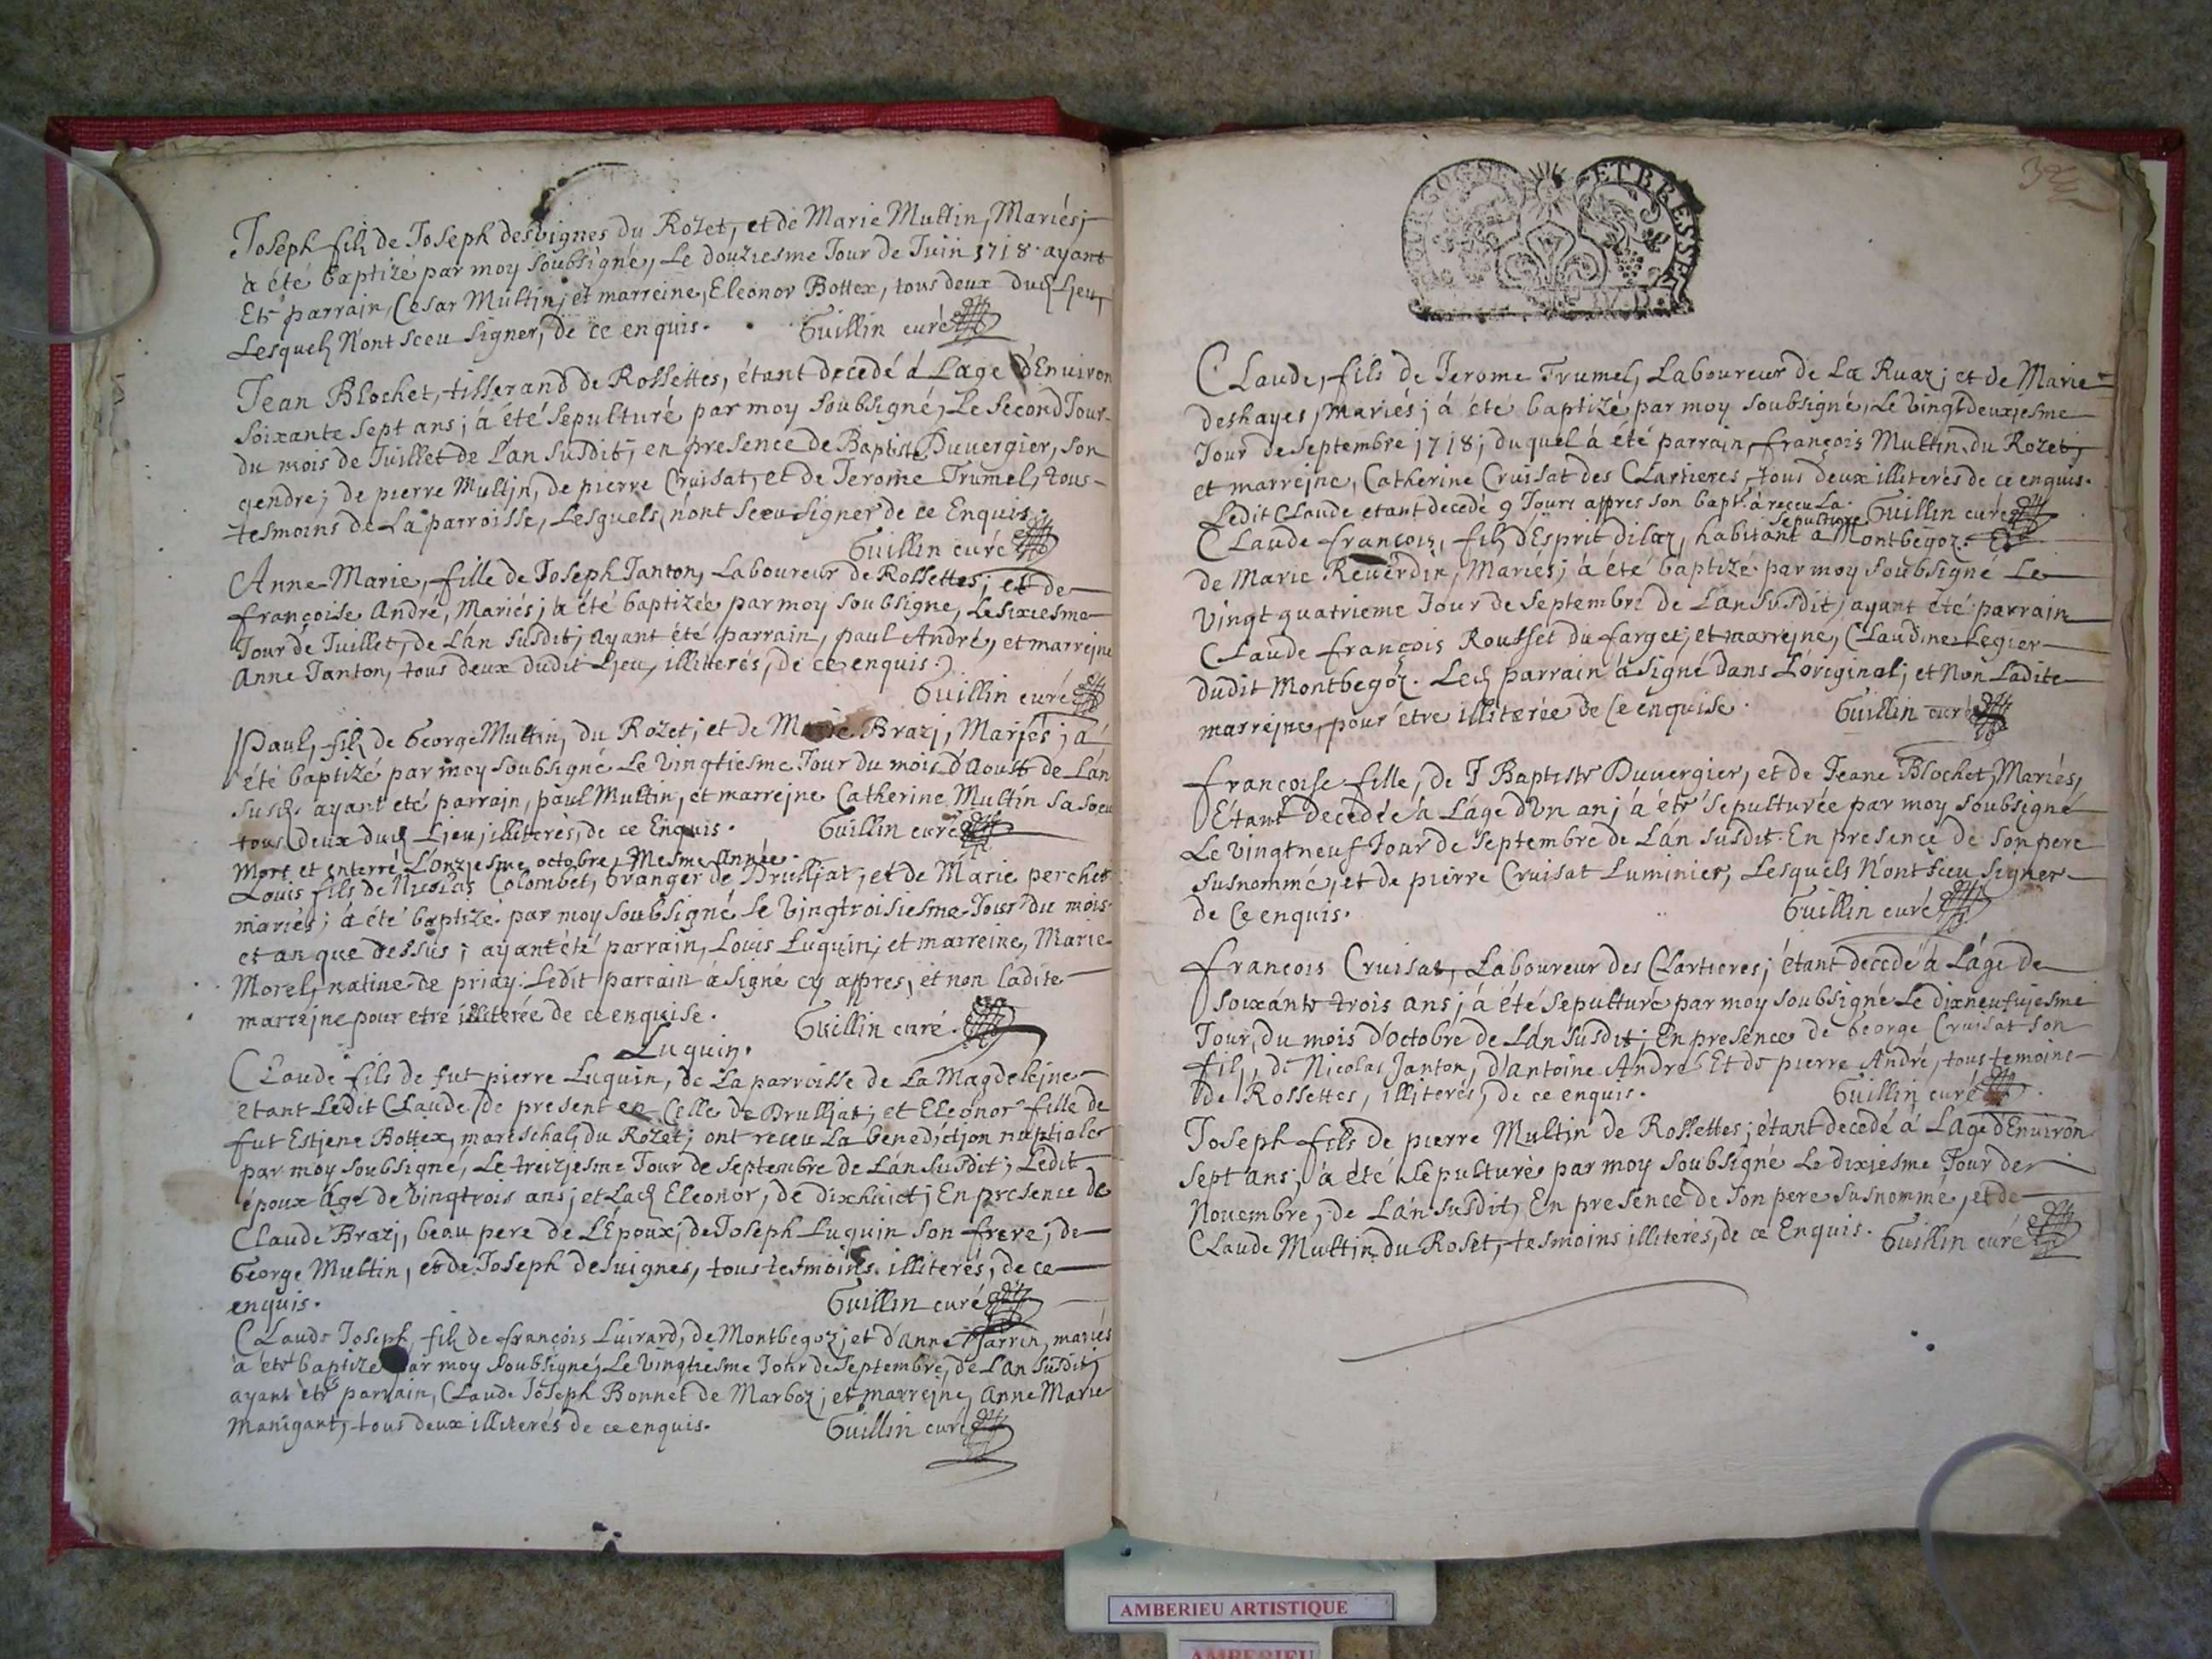 Joseph fils de Joseph desvignes du Rozet, et de Marie Multin, Mariés;
à été baptizé par moy soubsigné, Le douziesme Jour de Juin 1718. ayant
Eté parrain, Cesar Multin; et marreine, Eleonor Bottex, tous deux dud. Ljeu,
Lesquels N'ont sceu signer, de ce enquis. Guillin curé
Jean Blochet, tisserand de Rossettes, étant decedé á L'age d'Environ
soixante sept ans; á été sepulturé par moy soubsigné, Le second Jour
du mois de Juillet de L'an susdit; en presence de Baptiste Duvergier, son
gendre; de pierre Multjn, de pierre Cruisat, et de Jerome Trumel, tous
tesmoins de La parroisse, Lesquels n'ont sceu signer de ce Enquis.
Guillin curé
Anne-Marie, fille de Joseph Janton, Laboureur de Rossettes; et de
françoise André, Mariés; à été baptizée par moy soubsigné, Le sixiesme
Jour de Juillet, de L'an susdit; ayant été parrain, paul André, et marrejne
Anne Janton, tous deux dudit Ljeu, illiterés, de ce enquis.
Guillin curé
Paul, fils de George Multin, du Rozet; et de Marie Brazj, Marjés; à
été baptizé par moy soubsigné Le vingtiesme Jour du mois d'Aoust de L'an
susd. ayant eté parrain, paul Multin, et marrejne Catherine Multin sa soeu
tous deux dud. Ljeu, illiterés, de ce Enquis. Guillin curé
Mort et enterré L'onzjesme octobre, Mesme Année.
Louis fils de Nicolas Colombet, Granger de Drulljat; et de Marie perchet
mariés; à été baptizé par moy soubsigné le vingtroisiesme Jour du mois
et an que dessus; ayant été parrain, Louis Luquin; et marreine, Marie
Morel, native de priay. Ledit parrain à signé cy appres, et non ladite
marrejne pour etre illiterée de ce enquise. Guillin curé.
Luquin.
Claude fils de fut pierre Luquin, de La parroisse de La Magdelejne
etant Ledit Claude de present en Celle de Drulljat; et Eleonor fille de
fut Estjene Bottex, mareschal du Rozet; ont receu La benedictjon nuptiale
par moy soubsigné, Le treizjesme Jour de septembre de L'an susdit; Ledit
époux âgé de vingtrois ans; et Lad. Eleonor, de dixhuict; En presence de
Claude Brazj, beau pere de L'Époux; de Joseph Luquin son frere; de
George Multin, et de Joseph desvignes, tous tesmoins illiterés, de ce
enquis. Guillin curé
Claude Joseph, fils de françois Luirard, de Montbegoz; et d'Anne Jarrin, mariés
à été baptizé par moy soubsigné, Le vingtiesme Jour de septembre, de L'an susdit;
ayant été parrain, Claude Joseph Bonnet de Marboz; et marrejne, Anne Marie
Manigant, tous deux illiterés de ce enquis. Guillin curé
BOURGOGNE ET BRESSE
Claude, fils de Jerome Trumel, Laboureur de La Ruaz; et de Marie
deshayes, Mariés; à été baptizé par moy soubsigné, Le vingtdeuxjesme
Jour de septembre 1718; duquel à été parrain, françois Multin du Rozet;
et marrejne, Catherine Cruisat des Clartieres, tous deux illiterés de ce enquis.
Ledit Claude etant decedé 9 Jours appres son bapt. à receu La sepulture Guillin curé
Claude françois, fils d'Esprit dilaz, habitant à Montbegoz. Et
de Marie Reverdin, Mariés; à été baptizé par moy soubsigné Le
vingt quatrieme Jour de septembre de L'an susdit; ayant été parrain
Claude françois Rousset du farget; et marrejne, Claudine Legier
dudit Montbegoz. Led. parrain à signé dans L'original; et Non Ladite
marrejne, pour être illiterée de Ce enquise. Guillin curé
françoise fille, de J Baptiste Duvergier, et de Jeane Blochet, Mariés,
Etant decedée à L'age d'Un an; à été sepulturée par moy soubsigné
Le vingtneuf Jour de septembre de L'an susdit. En presence de son pere
susnommé, et de pierre Cruisat Luminier, Lesquels N'ont sceu signer
de Ce enquis. Guillin curé
françois Cruisat, Laboureur des Clartieres; étant decedé à L'âge de
soixante trois ans; à été sepulturé par moy soubsigné Le dixneufujesme
Jour, du mois d'Octobre de L'an susdit; En presence de George Cruisat son
fils, de Nicolas Janton, d'Antoine André Et de pierre André, tous temoins
de Rossettes, illiterés, de ce enquis. Guillin curé
Joseph fils de pierre Multin de Rossettes; étant decedé à L'age d'Environ
sept ans; à été sepulturé par moy soubsigné Le dixjesme Jour de
Novembre, de L'an susdit, En presence de son pere susnommé, et de
Claude Multin du Roset, tesmoins illiterés, de ce Enquis. Guillin curé
AMBERIEU ARTISTIQUE
AMBERIEU